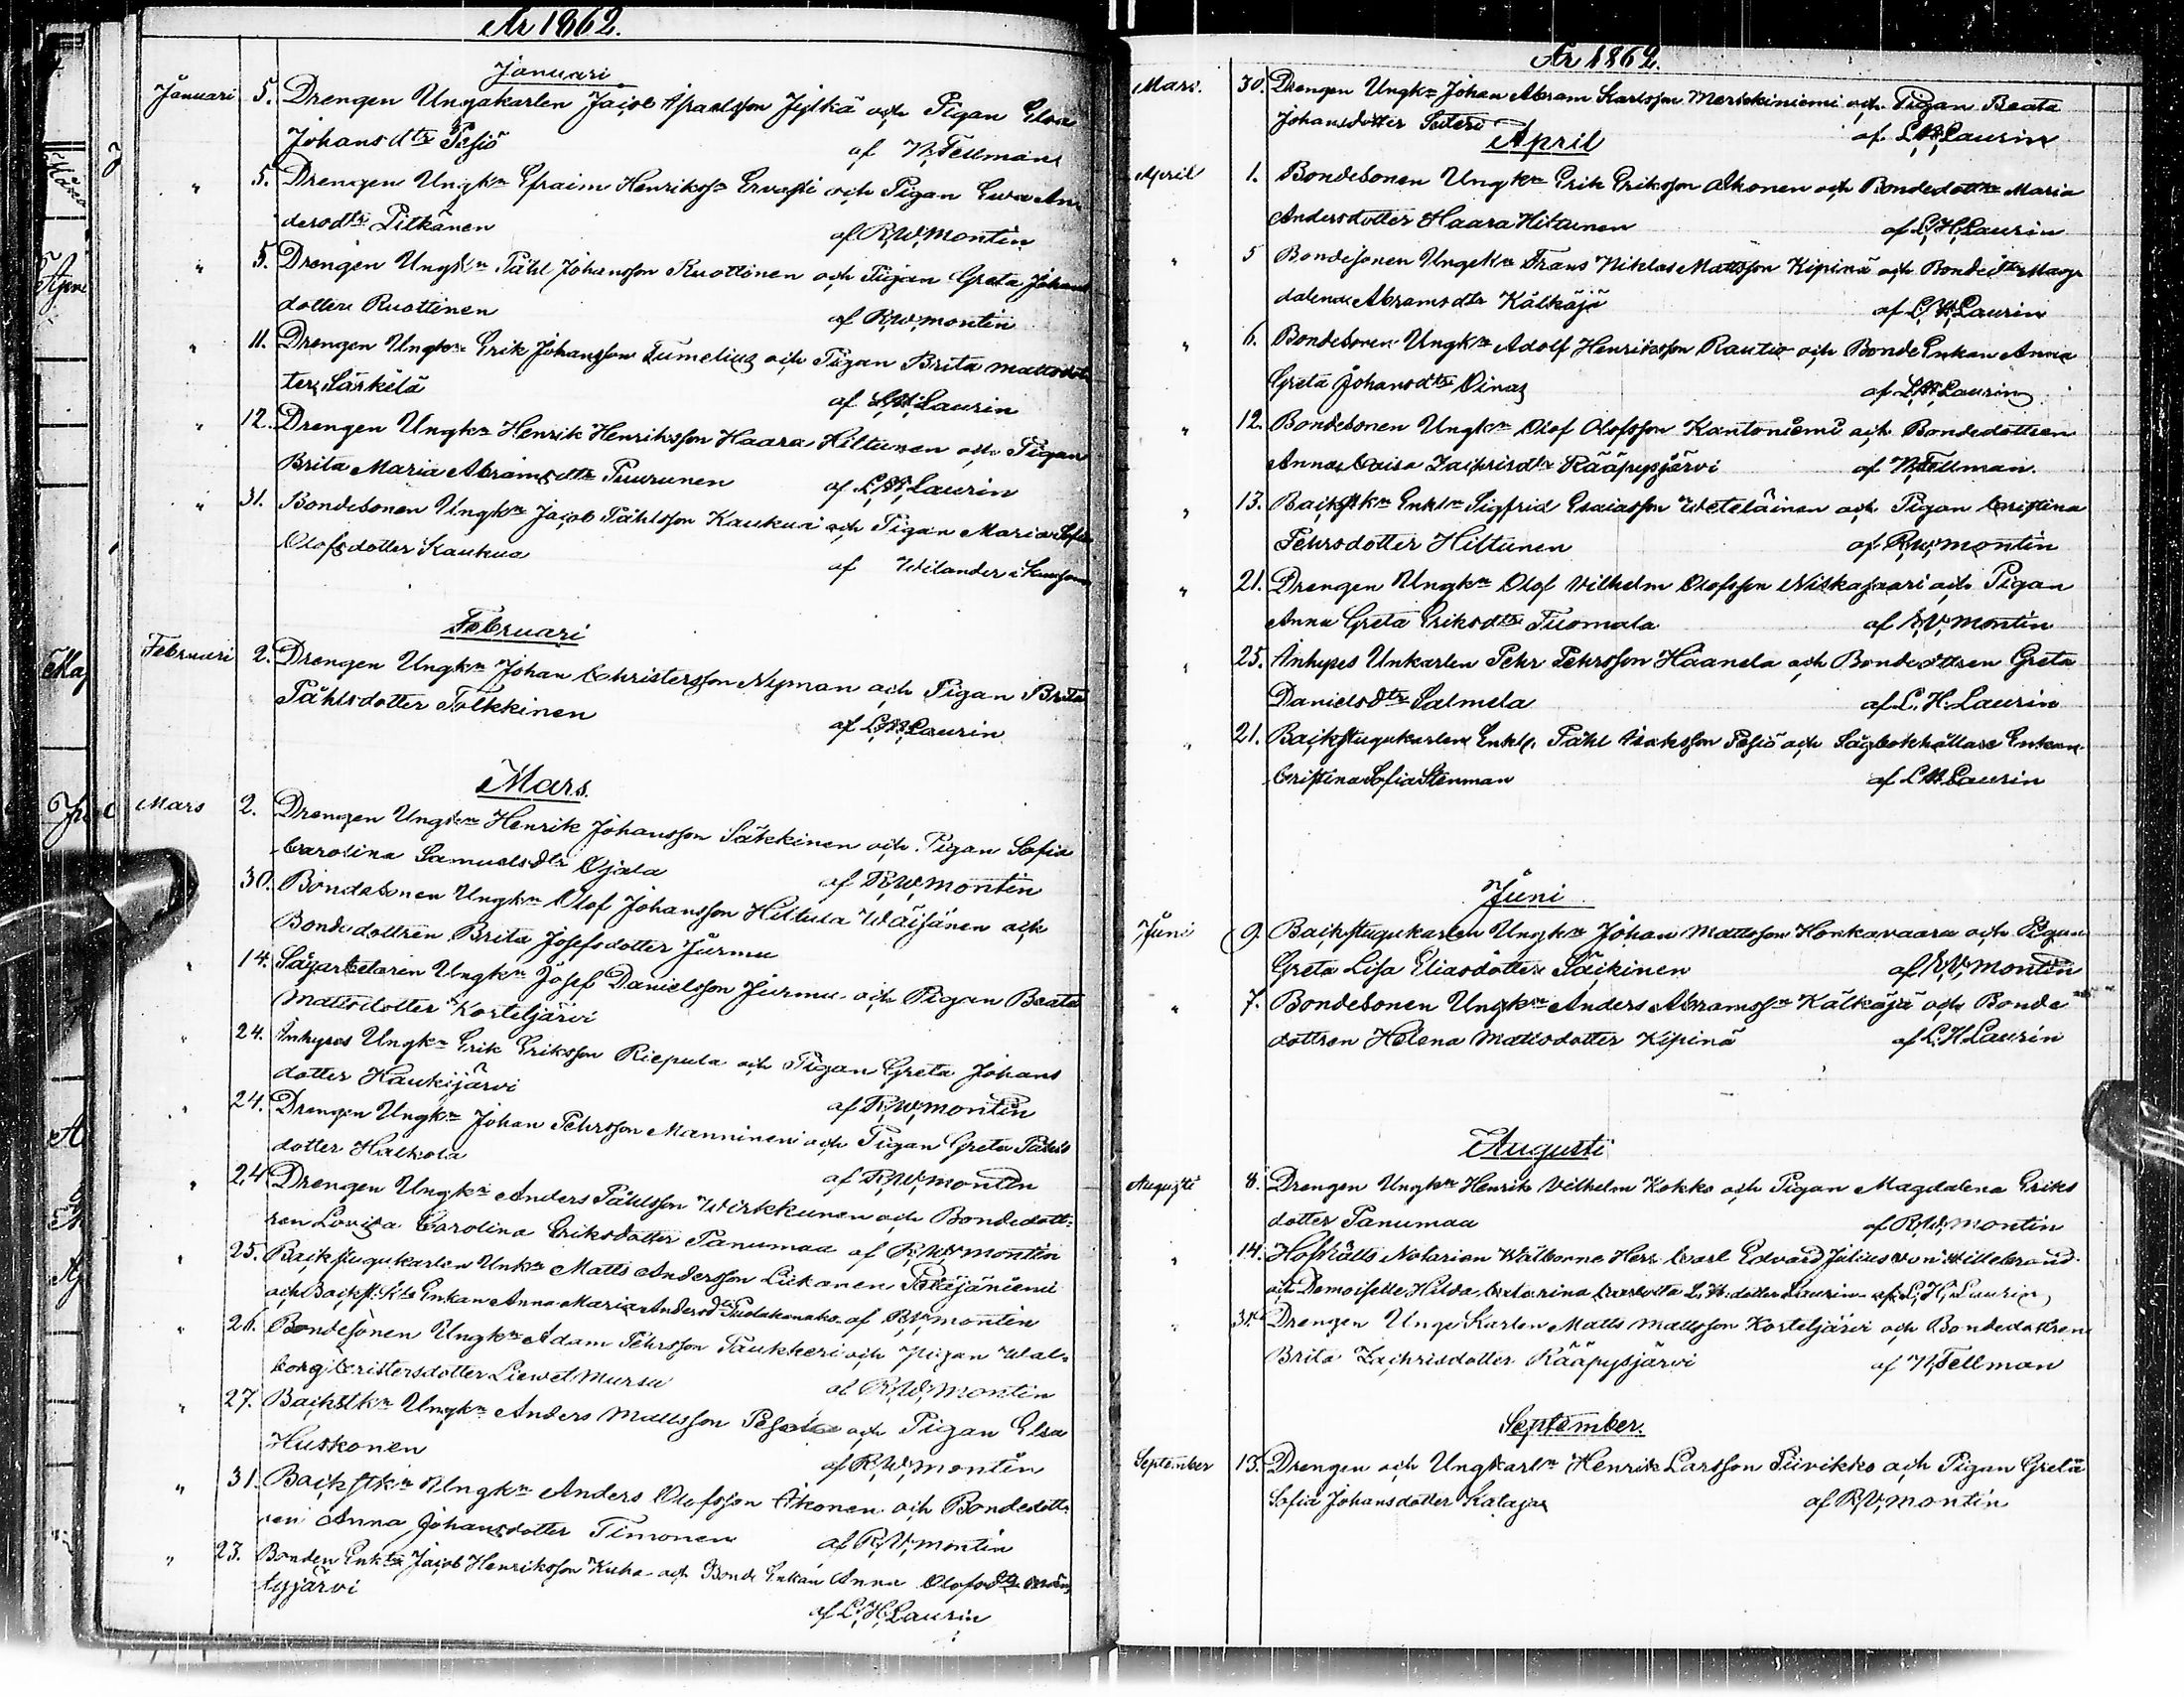 År 1862.
Januari
Januari 5. Drengen Ungakarlen Jacob Israelsson Jylkä och Pigan Elsa
Johansdtr Pesiö
af N. Fellman
" 5. Drengen Ungkn Efraim Henrikssn Ervasti och Pigan Ewa An
dersdtr Pitkänen
af R,W,Montin
" 5. Drengen Ungkn Påhl Johansson Ruottinen och Pigan Greta Johans
dotter Ruottinen
af R,W,Montin
" 11. Drengen Ungkn Erik Johansson Tumelius och Pigan Brita Mattsdot
ter, Särkelä
af L,H,Laurin
" 12. Drengen Ungkn Henrik Henriksson Haara Hiltunen och Pigan
Brita Maria Abramsdtr Puurunen
af L,H,Laurin
" 31. Bondesonen Ungkn Jacob Påhlsson Kaukua och Pigan Maria Sofia
Olofsdotter Kaukua
af Wilander i
Februari
Februari 2. Drengen Ungkn Johan Christersson Nyman och Pigan Brita
Påhlsdotter Tolkkinen
af L,H,Laurin
Mars
Mars 2. Drengen Ungkn Henrik Johansson Säkkinen och Pigan Sofia
Carolina Samuelsdtr Ojala
af R,W,Montin
30. Bondesonen Ungkn Olof Johansson Hiltula Wäisänen och
Bondedottren Brita Josefsdotter Jurmu
" 14. Sågarbetaren Ungkn Josef Danielsson Jurmu och Pigan Beata
Mattsdotter Korteljärvi
" 24. Inhyses Ungkn Erik Eriksson Riepula och Pigan Greta Johans
dotter Haukijärvi
af R,W,Montin
" 24. Drengen Ungkn Johan Pehrsson Manninen och Pigan Greta Påhls
dotter Halkola
af R,W,Montin
" 24 Drengen Ungkn Anders Påhlsson Wirkkunen och Bondedott-
ren Lovisa Carolina Eriksdotter Panumaa af R,W,Montin
" 25. Backstugukarlen Unkn Matts Andersson Liikanen Petäjäniemi
och Backst.Kls Enkan Anna Maria Andersdtr af R,W,Montin
" 26. Bondesonen Ungkn Adam Pehrsson Paukkeri och Pigan Wal-
borg Cristersdotter Liewet Mursu
af R,W,Montin
" 27. Backstkn Ungkn Anders Mattsson och Pigan Elsa
Huskonen
af R,W,Montin
" 31. Backstkn Ungkn Anders Olofsson Ahonen och Bondedott-
ren Anna Johansdotter Timonen
af R,W,Montin
" 23. Bonden Enkln Jacob Henriksson Kuha och Bonde Enkan Anna Olofsdtr
tyjärvi
af L,H,Laurin
År 1862.
Mars. 30. Drengen Ungkn Johan Abram Karlsson Meriskiniemi och Pigan Beata
Johansdotter
af. L,H,Laurin
April
April 1. Bondesonen Ungkn Erik Eriksson Ahonen och Bondedottrn Maria
Andersdotter Haara Hiltunen
af L,H,Laurin
" 5 Bondesonen Ungekn Frans Niklas Mattsson Kipinä och Bondedtrn Mag
dalena Abramsdtr Kälkäjä
af L,H,Laurin
" 6. Bondesonen Ungkn Adolf Henriksson Rautio och Bonde Enkan Anna
Greta Johansdtr Oinas
af L,H,Laurin
" 12. Bondesonen Ungkn Olof Olofsson Kantoniemi och Bondedottren
Anna Caisa Zachrisdtr Rääpysjärvi
af N,Fellman.
" 13. Backstkn Enkln Sigfrid Esaiasson Weteläinen och Pigan Cristina
Pehrsdotter Hiltunen
af R,W,Montin
" 21. Drengen Ungkn Olof Vilhelm Olofsson Niskasaari och Pigan
Anna Greta Eriksdtr Tuomala
af R,V,Montin
" 25. Inhyses Unkarlen Pehr Pehrsson Haanela och Bondedottren Greta
Danielsdtr Salmela
af L. H. Laurin
" 21. Backstugukarlen Enkl. Påhl Isaksson Pesiö och Sågbokhållare Enkan
Cristina Sofia Stenman
af L H Laurin
Juni
Juni 9. Backstugukarlen Ungkn Johan Mattsson Honkavaara och Pigan
Greta Lisa Eliasdotter Säikinen
af R,V,Montin
" 7. Bondesonen Ungkn Anders Abramssn Kälkäjä och Bonde
dottren Helena Mattsdotter Kipinä
af L.H.Laurin
Augusti
Augusti 8. Drengen Ungkn Henrik Vilhelm Kokko och Pigan Magdalena Eriks
dotter Panumaa
af R,W,Montin
" 14. Hofrätts Notarien Wälborne Herr Carl Edvard Julius von Willebrand
och Demoiselle Hilda Catarina Charlotta L. H. dotter Laurin af L,H,Laurin
" 31. Drengen Unge Karlen Matts Mattsson Korteljärvi och Bondedottren
Brita Zachrisdotter Rääpysjärvi
af N,Fellman
September.
September 13. Drengen och Ungkarln Henrik Larsson Piivikko och Pigan Greta
Sofia Johansdotter Kataja
af R,V,Montin